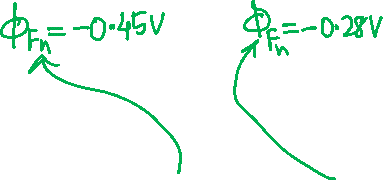 ϕFn = -0.45V
ϕFn = -0.28V